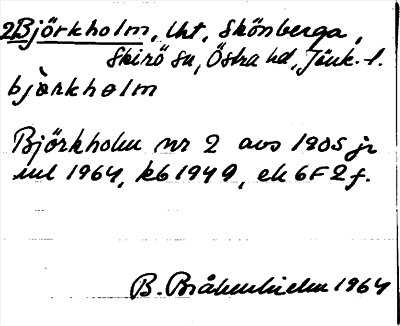 2 Björkholm, lht, Skönberga,
Skirö sn, Östra hd, Jönk. l.
bjòrkhəlm
Björkholm nr 2 avs 1905 jr
enl 1964, kb 1949, ek 6F2f.
B. Bråkenhielm 1964